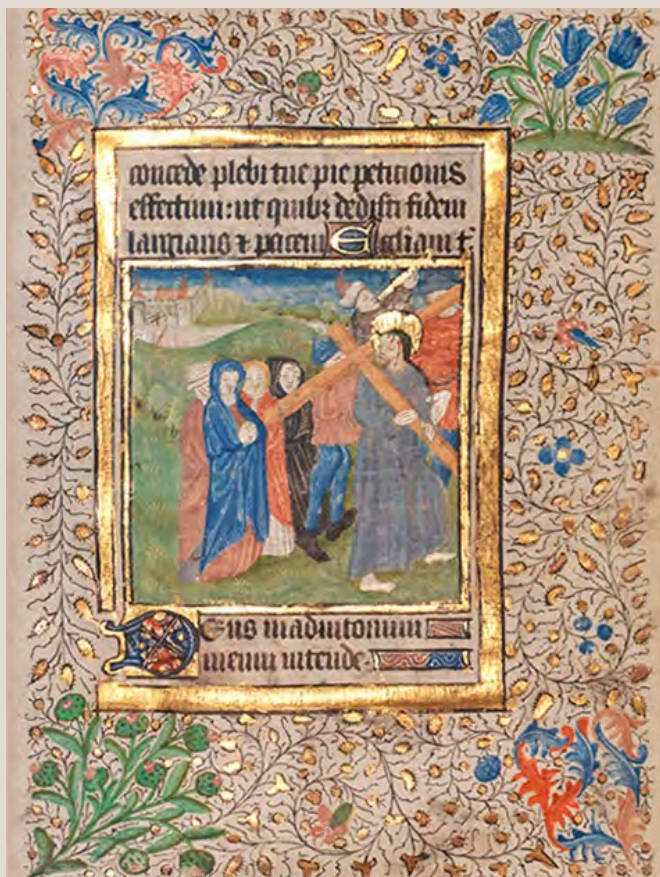 concede plebi tue pie petitionis
effectum: ut quibz dedisti fidem
largiaris ⁊ pacem
Deus in adiutorium
meum intende.